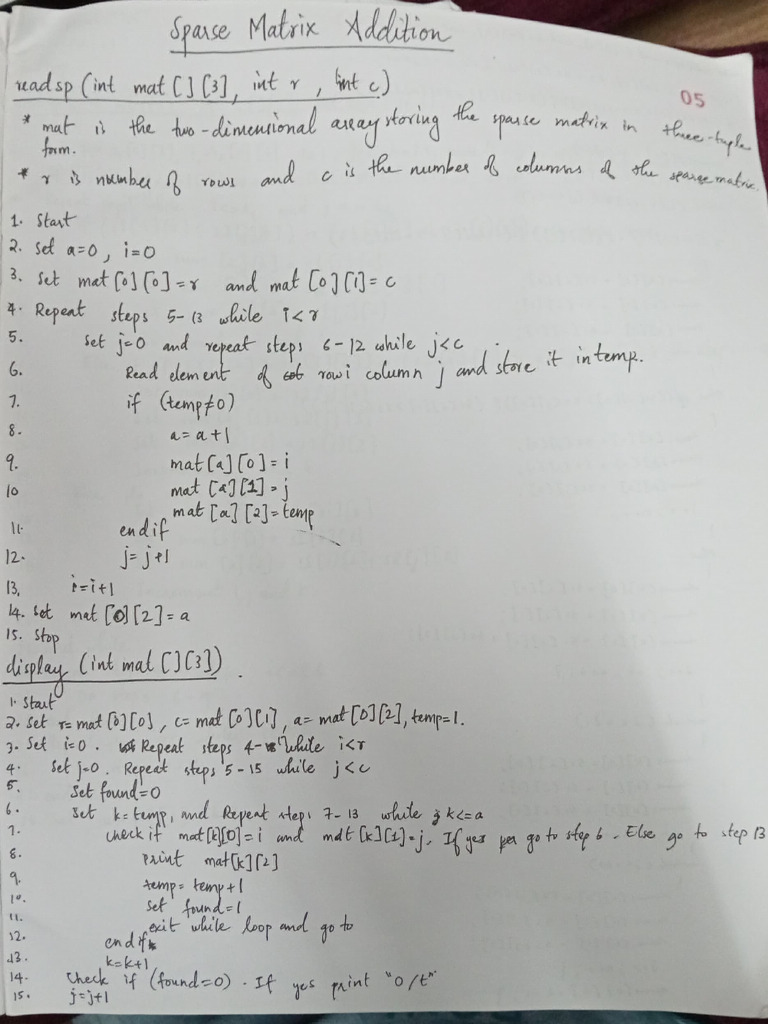 Sparse Matrix Addition
05
readsp (int mat[][3], int r, int c)
* mat is the two-dimensional array storing the sparse matrix in three-tuple
form.
* r is number of rows and c is the number of columns of the sparse matrix.
1. Start
2. Set a=0, i=0
3. Set mat[0][0]=r and mat[0][1]=c
4. Repeat steps 5-13 while i<r
5. Set j=0 and repeat steps 6-12 while j<c
6. Read element of row i column j and store it in temp.
7. if (temp≠0)
8. a=a+1
9. mat[a][0]=i
10 mat[a][1]=j
mat[a][2]=temp
11. endif
12. j=j+1
13, i=i+1
14. Set mat[0][2]=a
15. Stop
display (int mat[][3]).
1. Start
2. Set r=mat[0][0], c=mat[0][1], a=mat[0][2], temp=1.
3. Set i=0. Repeat steps 4- while i<r
4. Set j=0. Repeat steps 5-15 while j<c
5. Set found=0
6. Set k=temp, and Repeat steps 7-13 while k<=a
7. Check if mat[k][0]=i and mat[k][1]=j. If yes go to step 6. Else go to step 13
8. Print mat[k][2]
9. temp=temp+1
10. Set found=1
11. exit while loop and go to
12. endif
13. k=k+1
14. Check if (found=0). If yes print "0/t"
15. j=j+1